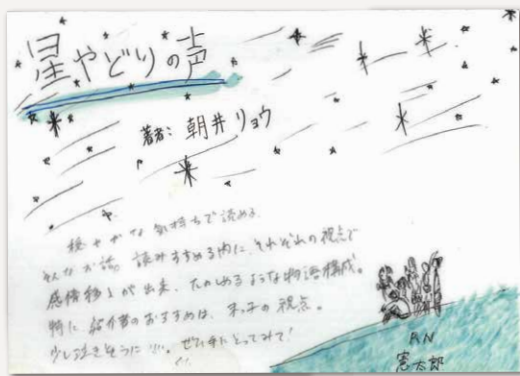 星やどりの声
著者: 朝井リョウ
穏やかな気持ちで読める
そんなお話。読みすすめる内に、それぞれの視点で
感情移入が出来、たのしめるような物語構成。
特に、紹介者のおすすめは、末っ子の視点。
少し泣きそうに…。ぜひ手にとってみて!
P.N
憲太郎